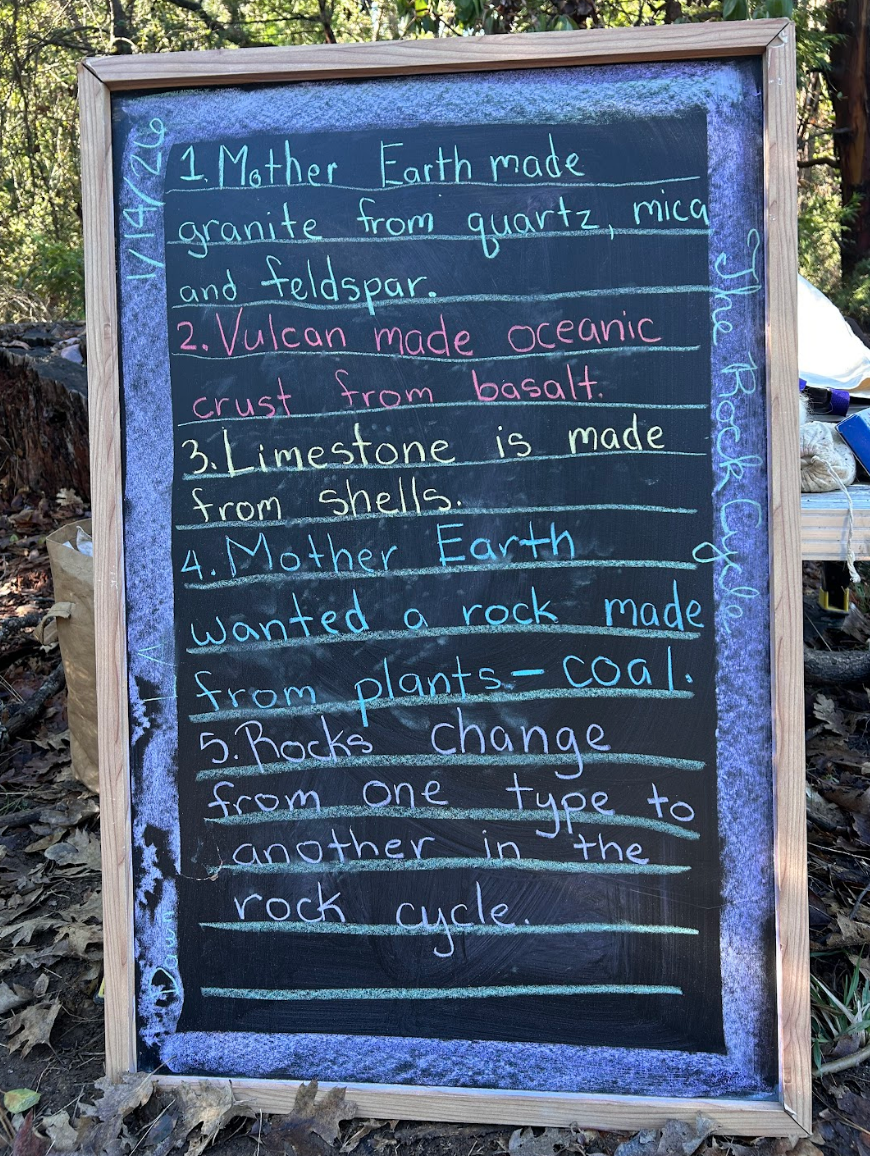 1/14/26
The Rock Cycle
1. Mother Earth made
granite from quartz, mica
and feldspar.
2. Vulcan made oceanic
crust from basalt.
3. Limestone is made
from shells.
4. Mother Earth
wanted a rock made
from plants – coal.
5. Rocks change
from one type to
another in the
rock cycle.